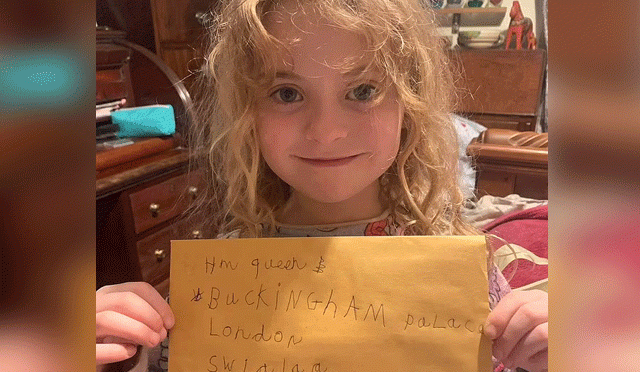 Hm queen
BUCKINGHAM PaLaca
London
SW1A1aa